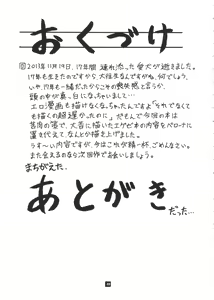 おくづけ
2013年11月19日、17年間 連れ添った愛犬が逝きました。
17年も生きたのですから、大往生なんですがね、何でしょう。
いや、17年も一緒だったからこその喪失感と言うか、
頭の中が真っ白になっちゃいまして…
エロ漫画も描けなくなっちゃったんですよ「それでなくて
も描くの超遅かったのに」だもんで今回の本は
苦肉の策で、大昔に描いたエヴァ本の内容をペローナに
置き代えて、なんとか描き上げました。
うす〜い内容ですが、今はこれが精一杯、ごめんなさい。
また会えるのなら次回作でお会いしましょう。
まちがえた、
あとがき
だった…